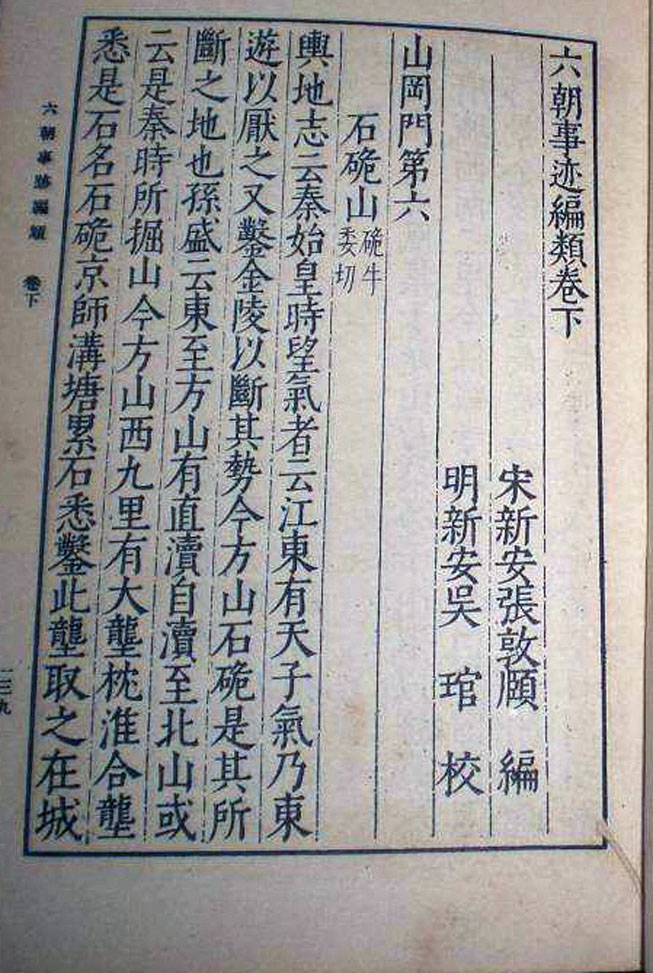 六朝事迹編類卷下
宋新安張敦頤 編
明新安吳 琯 校
山岡門第六
石硊山硊牛委切
輿地志云秦始皇時望氣者云江東有天子氣乃東
遊以厭之又鑿金陵以斷其勢今方山石硊是其所
斷之地也孫盛云東至方山有直瀆自瀆至北山或
云是秦時所掘山今方山西九里有大壟枕淮合壟
悉是石名石硊京師溝塘累石悉鑿此壟取之在城
六朝事迹編類 卷下
一三九